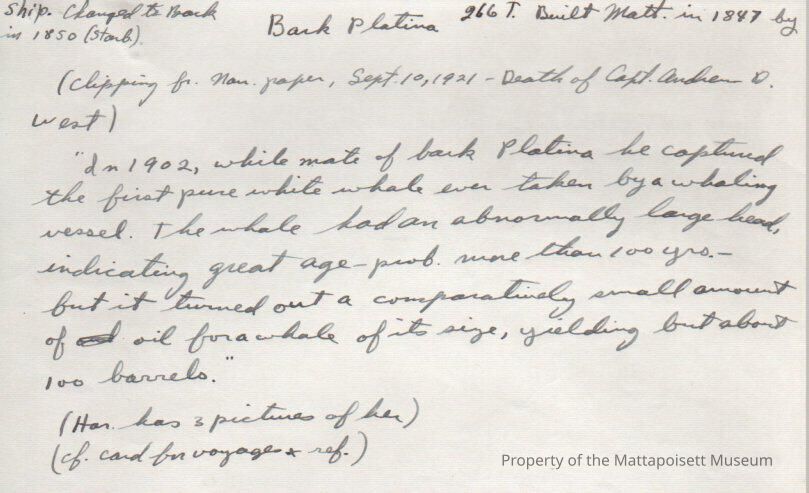 Ship. Changed to Bark
in 1850 (Starb).
Bark Platina 266 T. Built Matt. in 1847 by
(Clipping fr. Nan. paper, Sept. 10, 1921 - Death of Capt. Andrew D.
West)
"In 1902, while mate of bark Platina he captured
the first pure white whale ever taken by a whaling
vessel. The whale had an abnormally large head,
indicating great age - prob. more than 100 yrs. -
but it turned out a comparatively small amount
of oil for a whale of its size, yielding but about
100 barrels."
(Har. has 3 pictures of her)
(cf. card for voyages & ref.)
Property of the Mattapoisett Museum